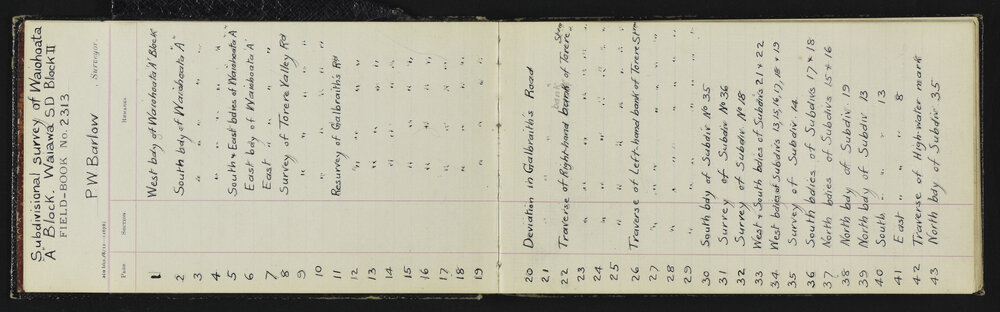 Subdivisional survey of Waiohoata
"A" Block. Waiawa S D Block II
FIELD-BOOK No. 2313
P W Barlow Surveyor.
Page. Section. Remarks.
1 West bdy of Waiohoata 'A' Block
2 South bdy of Waiohoata "A"
3 " " "
4 " " "
5 South & East bdies of Waiohoata A
6 East bdy of Waiohoata A'
7 East " "
8 Survey of Torere Valley Rd
9 " " " "
10 " " " "
11 Resurvey of Galbraith's Rd
12 " " "
13 " " "
14 " " "
15 " " "
16 " " "
17 " " "
18 " " "
19 " " "
20 Deviation in Galbraith's Road
21 " " "
22 Traverse of Right-hand bank of Torere Stm
23 " " " "
24 " " " "
25 " " " "
26 Traverse of Left-hand bank of Torere Stm
27 " " " "
28 " " " "
29 " " " "
30 South bdy of Subdiv No 35
31 Survey of Subdiv No 36
32 Survey of Subdiv No 18
33 West & South bdies of Subdivs 21 & 22
34 West bdies of Subdivs 13, 15, 16, 17, 18 & 19
35 Survey of Subdiv 14
36 South bdies of Subdivs 17 & 18
37 North bdies of Subdivs 15 & 16
38 North bdy of Subdiv 19
39 North bdy of Subdiv 13
40 South " " 13
41 East " " 8
42 Traverse of High-water mark
43 North bdy of Subdiv 35